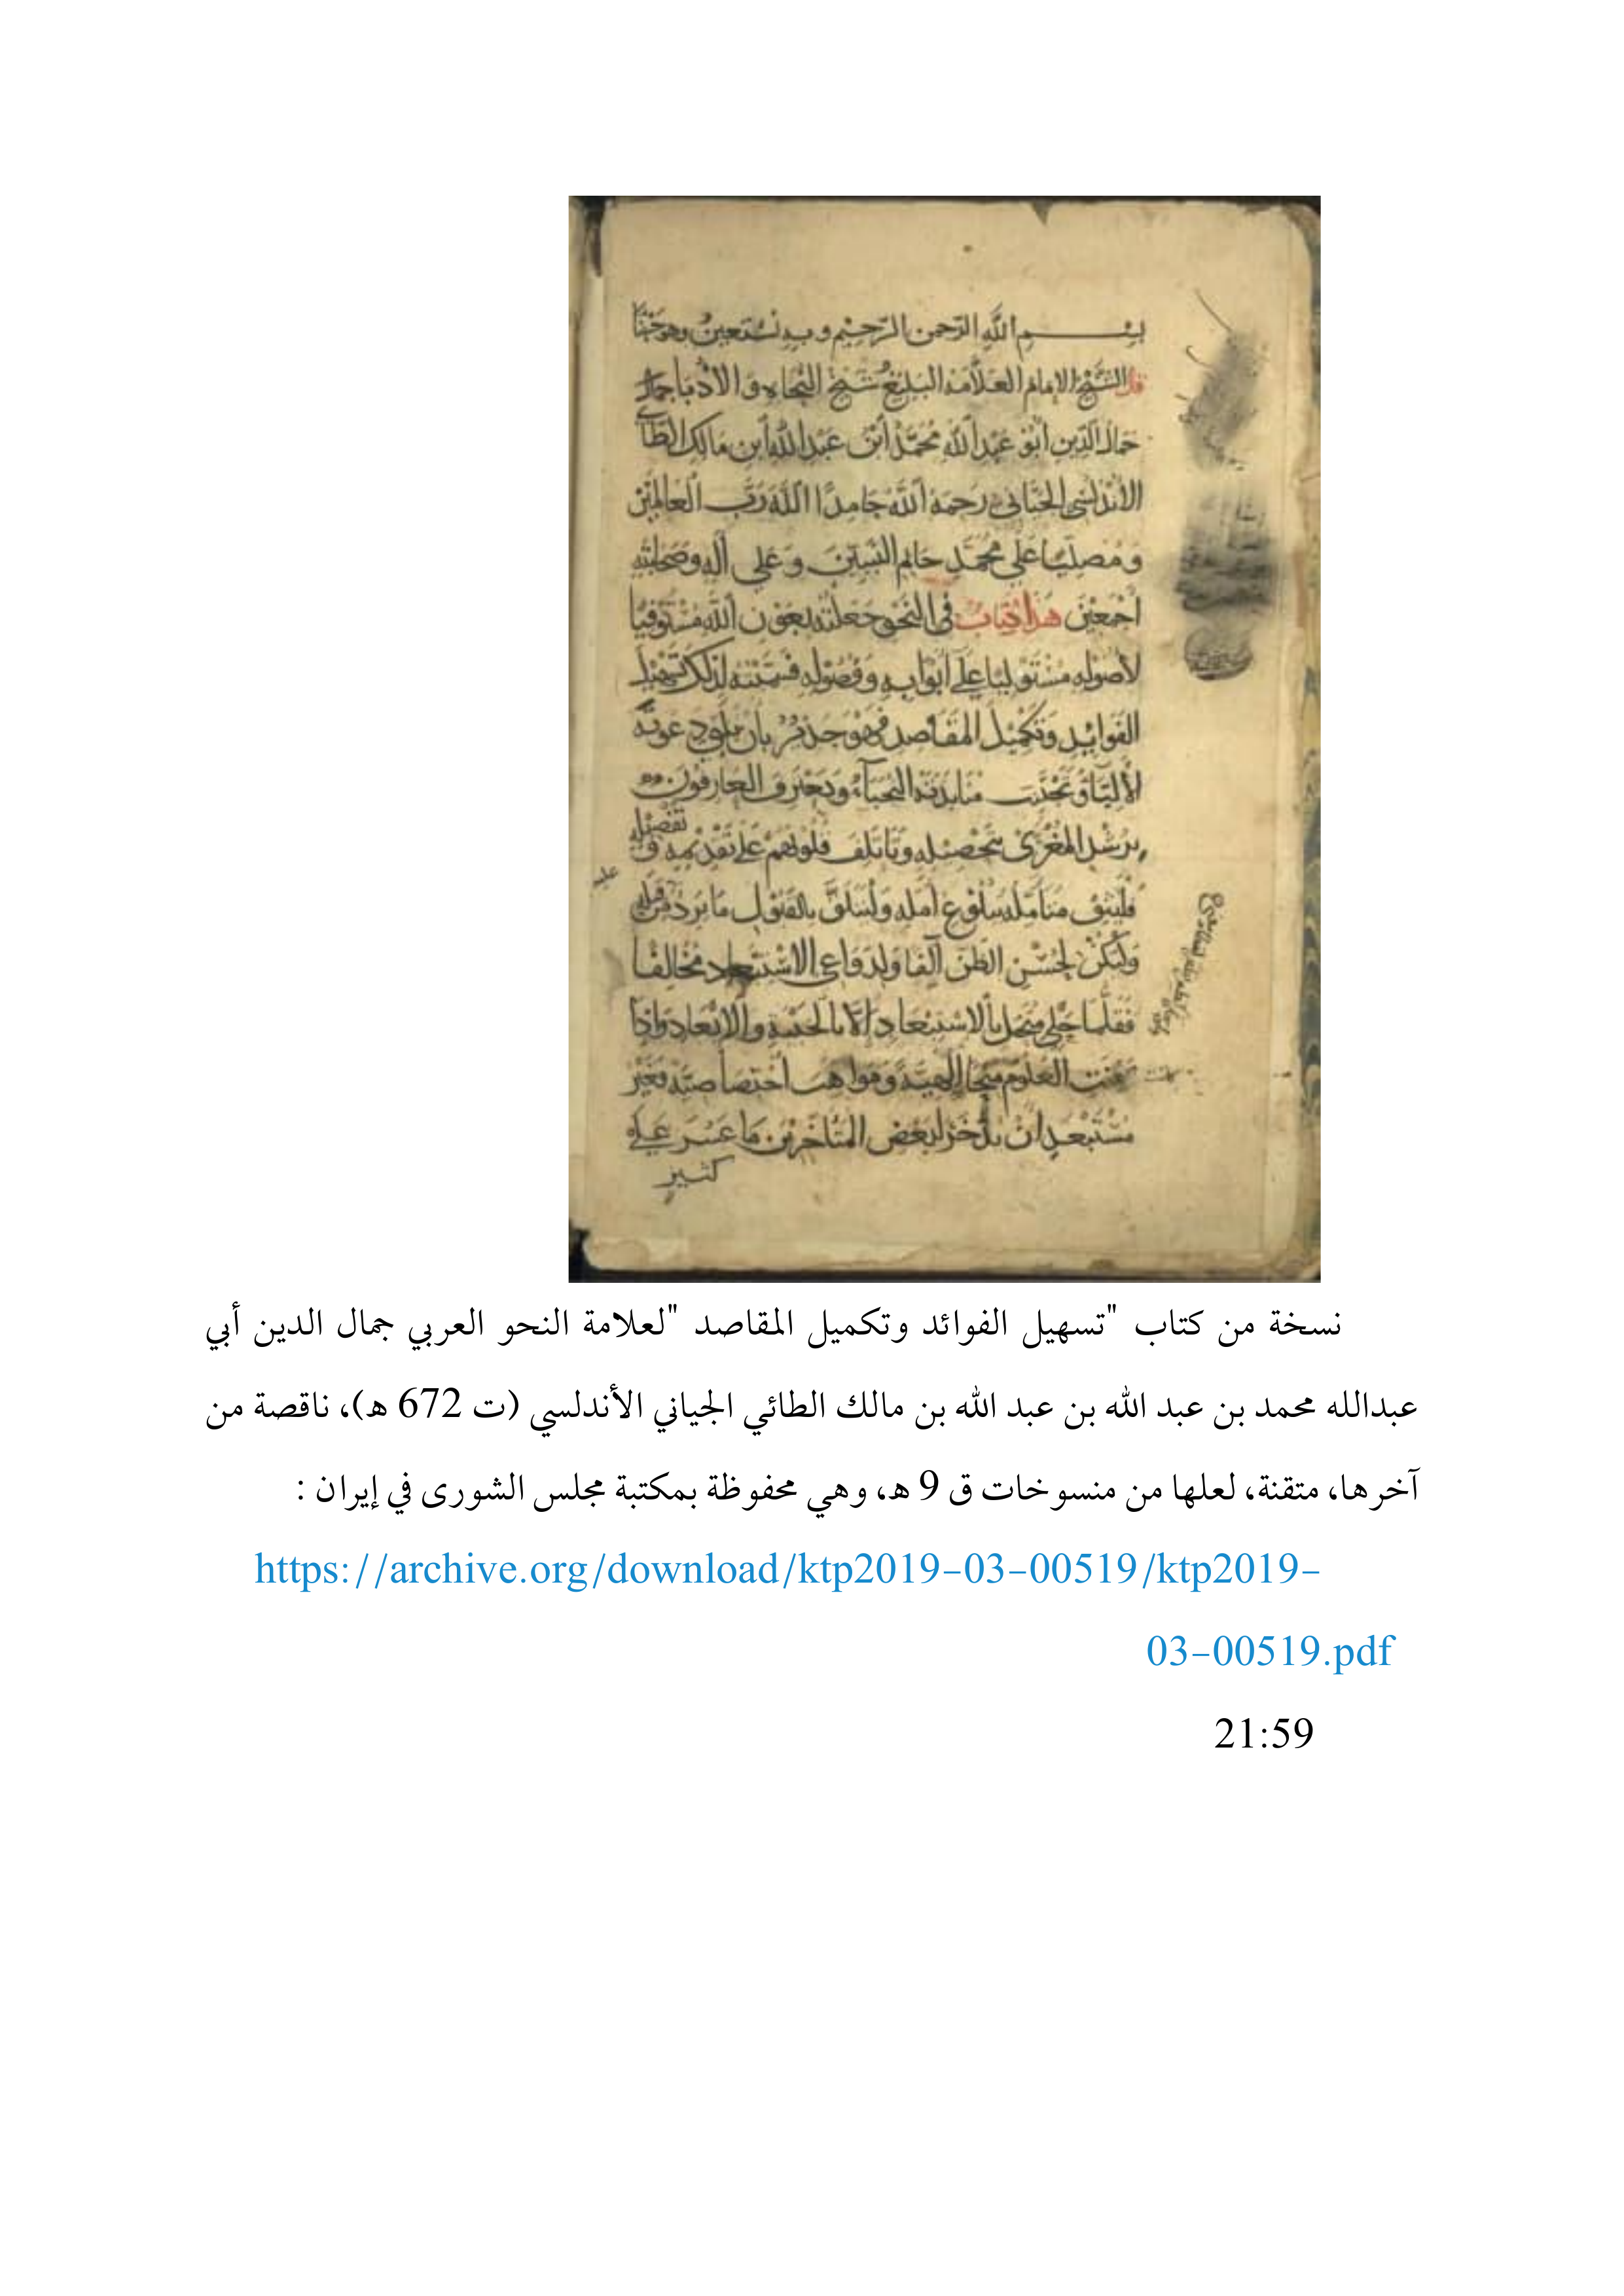 بسم الله الرحمن الرحيم وبه نستعين وهو حسبنا
قال الشيخ الامام العلامة البليغ شيخ النحاه و الادبا جمال
جمال الدين أبو عبد الله محمد ابن عبد الله ابن مالك الطائ
الأندلسي الجياني رحمه الله حامدا الله رب العالمين
و مصليا على محمد خاتم النبيين وعلى آله وصحابته
اجمعين هذا كتاب في النحو جعلته بعون الله مستوفيا
لأصوله مستوليا على أبوابه وفصوله فسميته لذلك تسهيل
الفوايد وتكميل المقاصد فهو جدير بان يلبي دعوته
الألبا و تجتنب منابذته النجباء ويعترف العارفون
برشد المغرى بتحصيله وتاتلف قلوبهم على تقديمه و تفضيله
فليثق متامله ببلوغ امله وليتلق بالقبول ما يرد من قبله
وليكن لحسن الظن آلفا ولدواعي الاستبعاد مخالفا
فقلما حلي متحل بالاستبعاد الا بالخيبة والابعاد واذا
العلوم منحا الهية ومواهب اختصاصية فغير
مستبعد ان يدخر لبعض المتاخرين ما عسر على
كثير
نسخة من كتاب "تسهيل الفوائد وتكميل المقاصد "لعلامة النحو العربي جمال الدين أبي
عبدالله محمد بن عبد الله بن عبد الله بن مالك الطائي الجياني الأندلسي (ت 672 ه)، ناقصة من
آخرها، متقنة، لعلها من منسوخات ق 9 ه، وهي محفوظة بمكتبة مجلس الشورى في إيران :
https://archive.org/download/ktp2019-03-00519/ktp2019-
03-00519.pdf
21:59